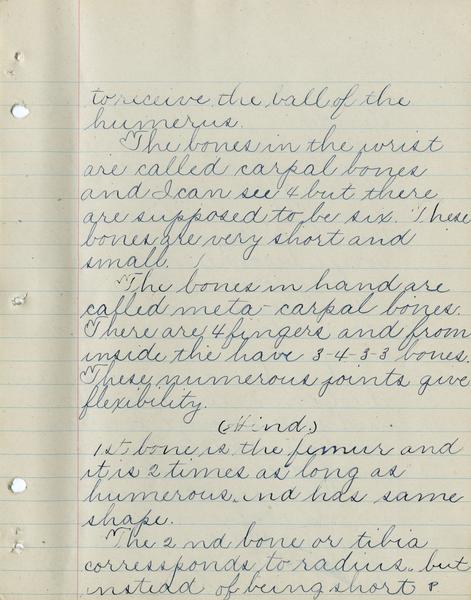 to receive the ball of the
humerus.
The bones in the wrist
are called carpal bones
and I can see 4 but there
are supposed to be six. These
bones are very short and
small.
The bones in hand are
called meta-carpal bones.
There are 4 fingers and from
inside the have 3-4-3-3 bones.
These numerous joints give
flexibility.
(Hind.)
1st bone is the femur and
it is 2 times as long as
humerous. and has same
shape.
The 2nd bone or tibia
corressponds to radius. but
instead of being short &